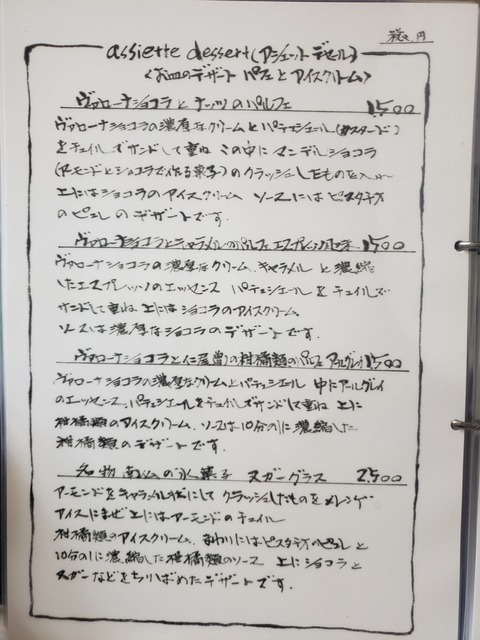 税込 円
assiette dessert (アシェット デセール)
<お皿のデザート パフェ と アイスクリーム>
ヴァローナショコラ と ナッツ の パルフェ 1500
ヴァローナショコラの濃厚なクリーム と パティシエール(カスタード)
を チュイルで サンドして重ね この中に マンデルショコラ
(アーモンドとショコラで作る菓子) の クラッシュしたものを入れ
上にはショコラのアイスクリーム ソースには ピスタチオ
のピュレ の デザートです.
ヴァローナショコラとキャラメルのパルフェ 1500
ヴァローナショコラの濃厚なクリーム、キャラメル と 濃縮
したエスプレッソのエッセンス パティシエール を チュイルで
サンドして重ね 上には ショコラのアイスクリーム
ソースは濃厚なショコラの デザートです.
ヴァローナショコラと の柑橘類のパルフェ アールグレイ 1500
ヴァローナショコラの濃厚なクリームとパティシエール 中にアールグレイ
のエッセンス、パティシエールをチュイルでサンドして重ね 上に
柑橘類のアイスクリーム、ソースは10分の1に濃縮した
柑橘類 の デザートです.
名物 南仏の氷菓子 ヌガーグラス 2500
アーモンドをキャラメル状にして クラッシュしたものを メレンゲ
アイスにまぜ 上にはアーモンドのチュイル
柑橘類のアイスクリーム、まわりにはピスタチオのピュレ と
10分の1に濃縮した柑橘類のソース 上に ショコラと
ヌガーなどをちりばめたデザートです.